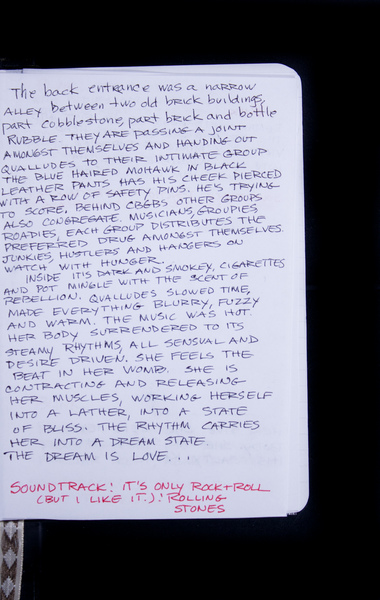 The back entrance was a narrow
ALLEY between two old brick buildings,
part cobblestone, part brick and bottle
RUBBLE. THEY ARE PASSING A JOINT
AMONGST THEMSELVES AND HANDING OUT
QUALLUDES TO THEIR INTIMATE GROUP
THE BLUE HAIRED MOHAWK IN BLACK
LEATHER PANTS HAS HIS CHEEK PIERCED
WITH A ROW OF SAFETY PINS. HE'S TRYING
TO SCORE, BEHIND CBGBS OTHER GROUPS
ALSO CONGREGATE. MUSICIANS, GROUPIES,
ROADIES, EACH GROUP DISTRIBUTES THE
PREFERRED DRUG AMONGST THEMSELVES.
JUNKIES, HUSTLERS AND HANGERS ON
WATCH WITH HUNGER.
INSIDE IT'S DARK AND SMOKEY, CIGARETTES
AND POT MINGLE WITH THE SCENT OF
REBELLION. QUALLUDES SLOWED TIME,
MADE EVERYTHING BLURRY, FUZZY
AND WARM. THE MUSIC WAS HOT.
HER BODY SURRENDERED TO ITS
STEAMY RHYTHMS, ALL SENSUAL AND
DESIRE DRIVEN. SHE FEELS THE
BEAT IN HER WOMB. SHE IS
CONTRACTING AND RELEASING
HER MUSCLES, WORKING HERSELF
INTO A LATHER, INTO A STATE
OF BLISS. THE RHYTHM CARRIES
HER INTO A DREAM STATE.
THE DREAM IS LOVE...
SOUNDTRACK: IT'S ONLY ROCK+ROLL
(BUT I LIKE IT.): ROLLING
STONES